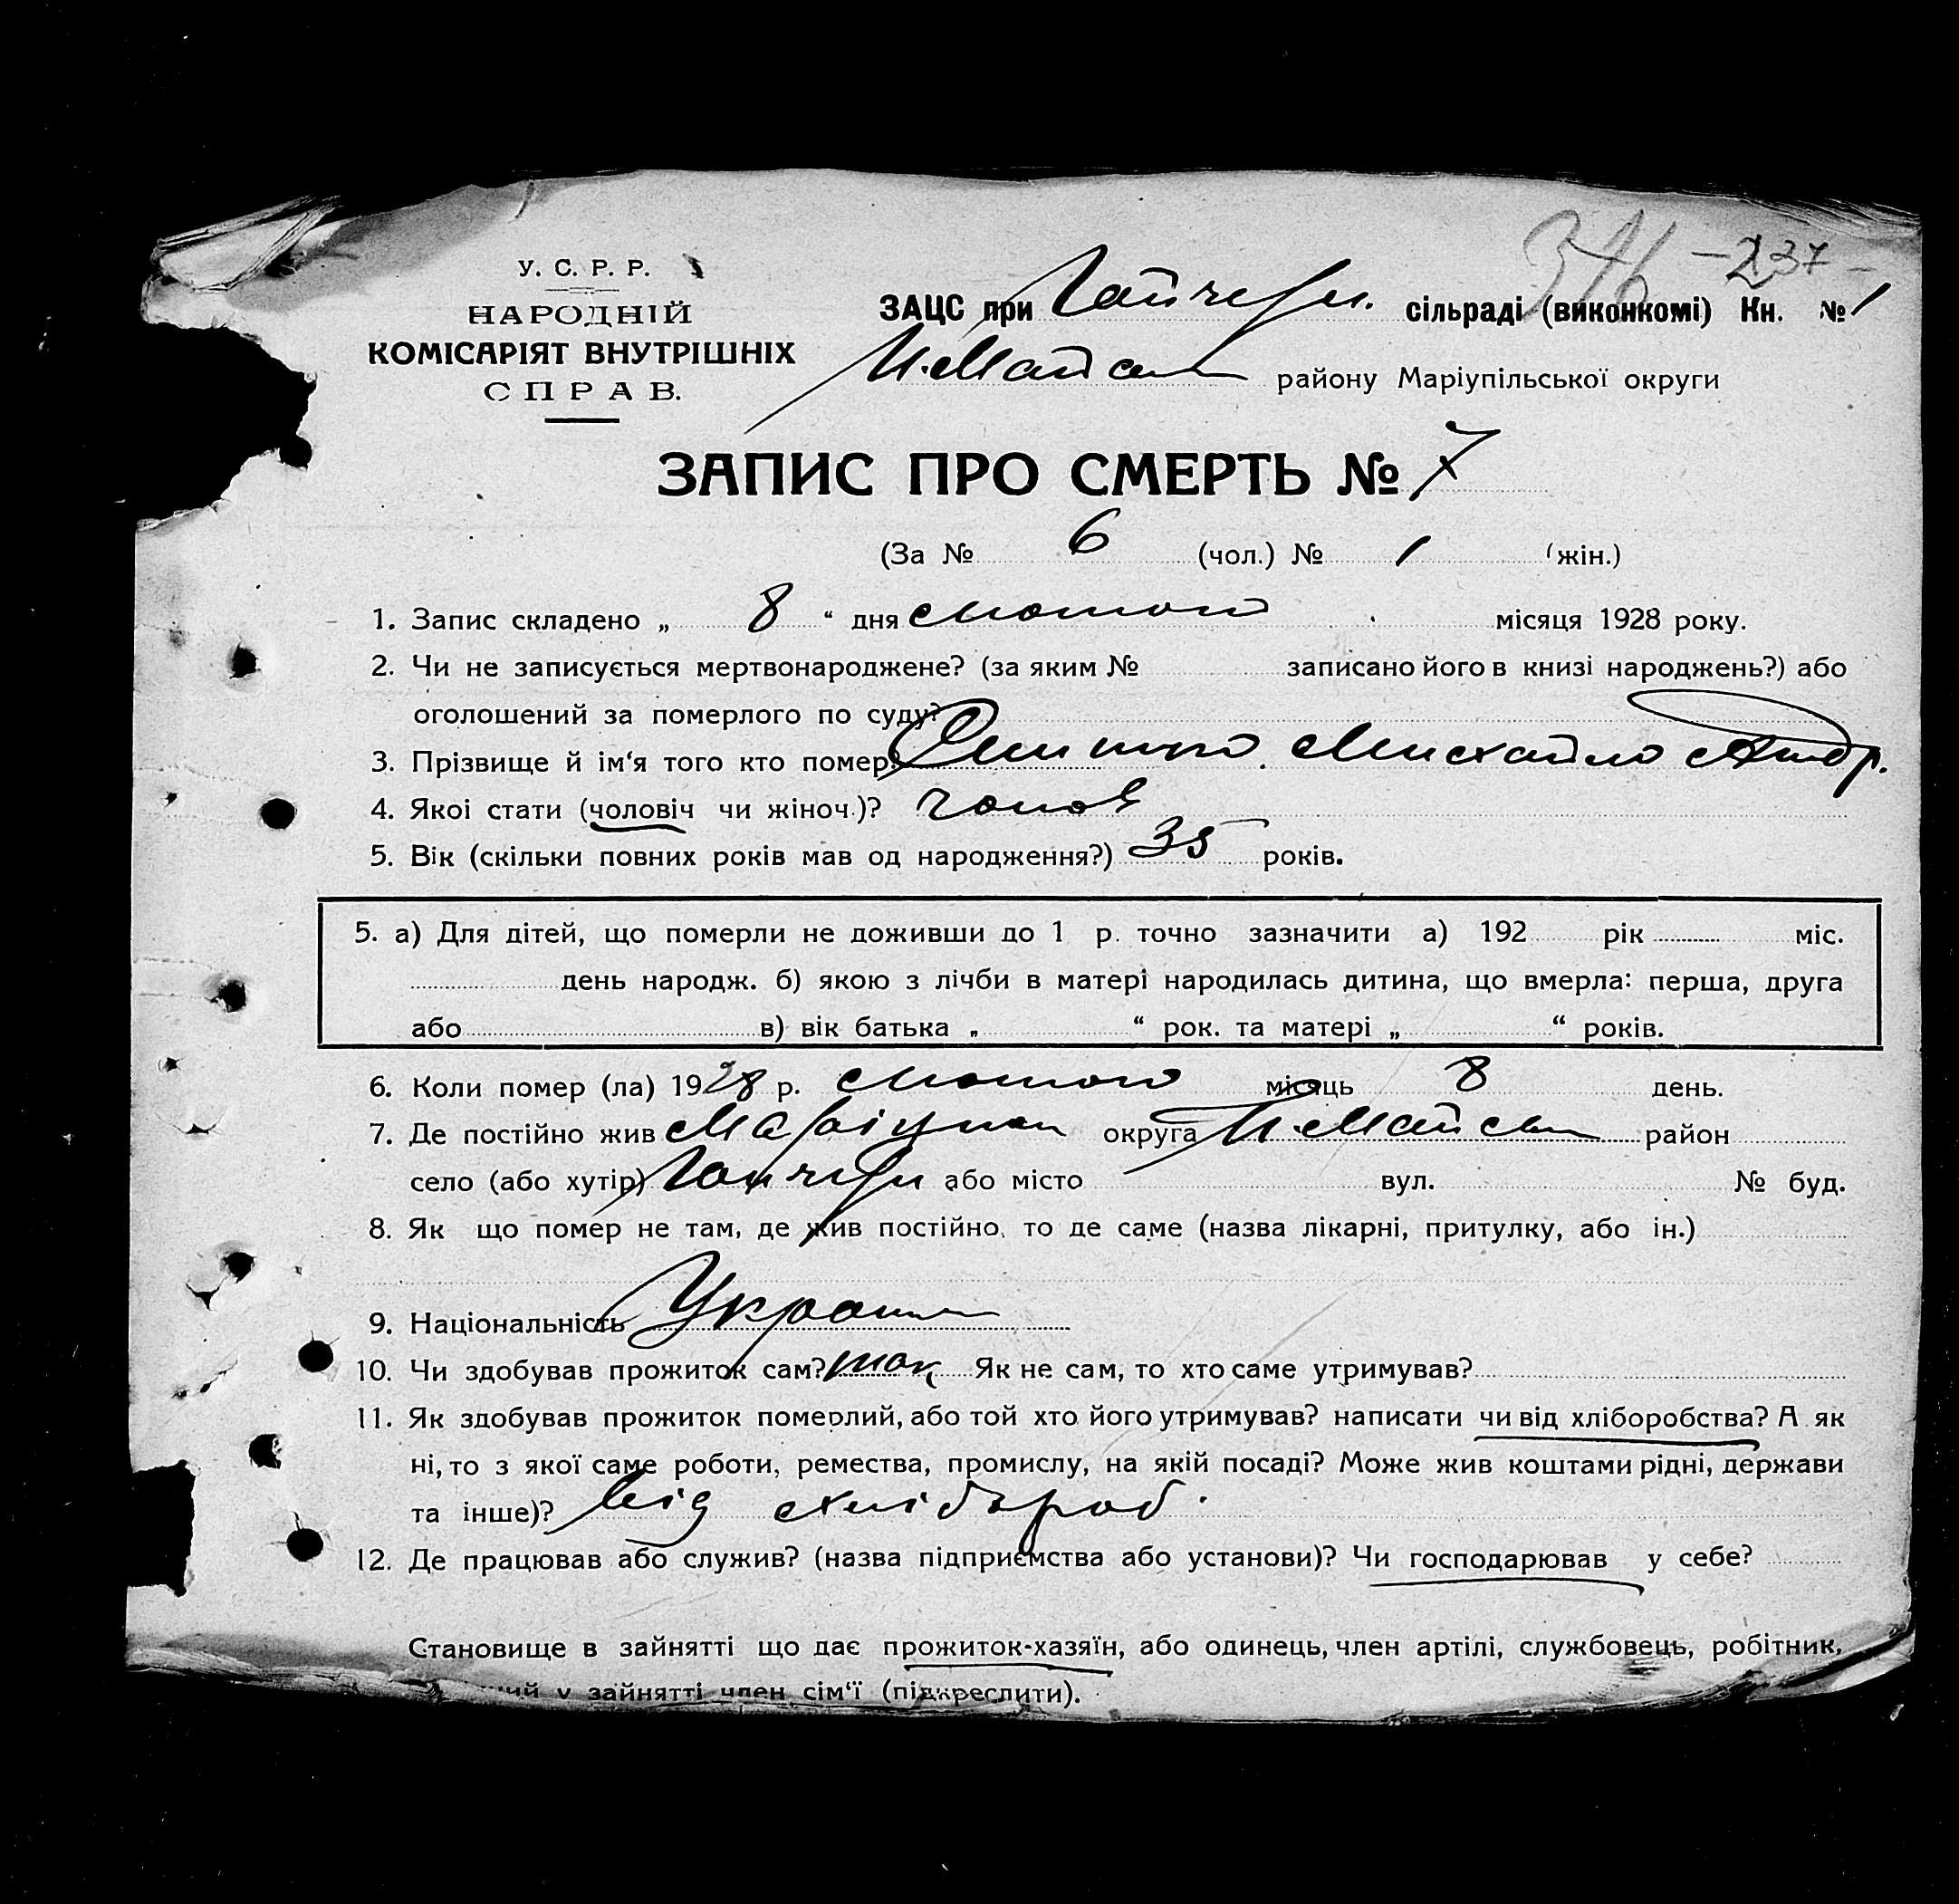 346 - 237 -
У. С. Р. Р.
НАРОДНІЙ
КОМІСАРІЯТ ВНУТРІШНІХ
СПРАВ.
ЗАЦС при сільраді (виконкомі) Кн. № 1
району Маріупільської округи
ЗАПИС ПРО СМЕРТЬ № 7
(За № 6 (чол.) № 1 (жін.)
1. Запис складено „ 8 “ дня лютого місяця 1928 року.
2. Чи не записується мертвонароджене? (за яким № записано його в книзі народжень?) або
оголошений за померлого по суду?
3. Прізвище й ім'я того кто помер? Михайло Андр.
4. Якоі стати (чоловіч чи жіноч.)? чолов
5. Вік (скільки повних років мав од народження?) 35 років.
5. а) Для дітей, що померли не доживши до 1 р. точно зазначити а) 192 рік міс.
день народж. б) якою з лічби в матері народилась дитина, що вмерла: перша, друга
або в) вік батька „ “ рок. та матері „ “ років.
6. Коли помер (ла) 1928 р. лютого місяць 8 день.
7. Де постійно жив Маріупол округа район
село (або хутір) або місто вул. № буд.
8. Як що помер не там, де жив постійно, то де саме (назва лікарні, притулку, або ін.)
9. Національність Україн
10. Чи здобував прожиток сам? так Як не сам, то хто саме утримував?
11. Як здобував прожиток померлий, або той хто його утримував? написати чи від хліборобства? А як
ні, то з якої саме роботи, ремества, промислу, на якій посаді? Може жив коштами рідні, держави
та інше)? від хлібороб.
12. Де працював або служив? (назва підприємства або установи)? Чи господарював у себе?
Становище в зайнятті що дає прожиток-хазяїн, або одинець, член артілі, службовець, робітник,
у зайнятті член сім'ї (підкреслити).